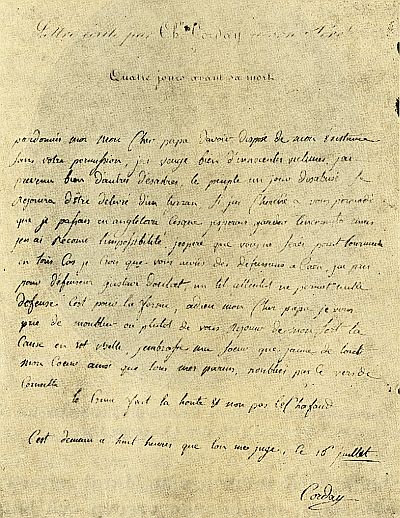 Lettre écrite par Ch. Corday à son Père
Quatre jours avant sa mort
pardonnés moi mon Cher papa d'avoir disposé de mon Existance
sans votre permission, j'ai vengé bien d'innocentes victimes, j'ai
prevenu bien d'autres désastres, le peuple un jour désabusé, se
rejouira d'être délivré d'un tyran. Si j'ai cherché a vous persuadé
que je passais en angleterre, cesque jesperais garder l'incognito mais
jen ai reconnu l'impossibilité. jespère que vous ne serez point tourmenté
en tous Cas je crois que vous auriés des défenseurs a Caen, j'ai pris
pour défenseur gustave Doulcet, un tel attentat ne permet nulle
défense C'est pour la forme, adieu mon Cher papa je vous
prie de moublier ou plutôt de vous rejouir de mon sort la
Cause en est belle, jembrasse ma soeur que jaime de tout
mon Coeur ainsi que tous mes parens, noubliés pas ce vers de
Corneille
le Crime fait la honte et non pas l'échafaud
C'est demain a huit heures que l'on me juge, Ce 16 juillet
Corday